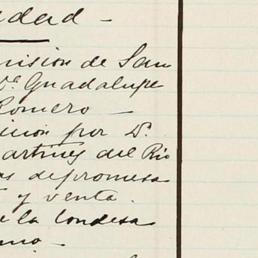 edad -
ision de San
Dª Guadalupe
Romero -
sion por D.
artinez del Rio
as de promesa
y venta.
e la Condesa